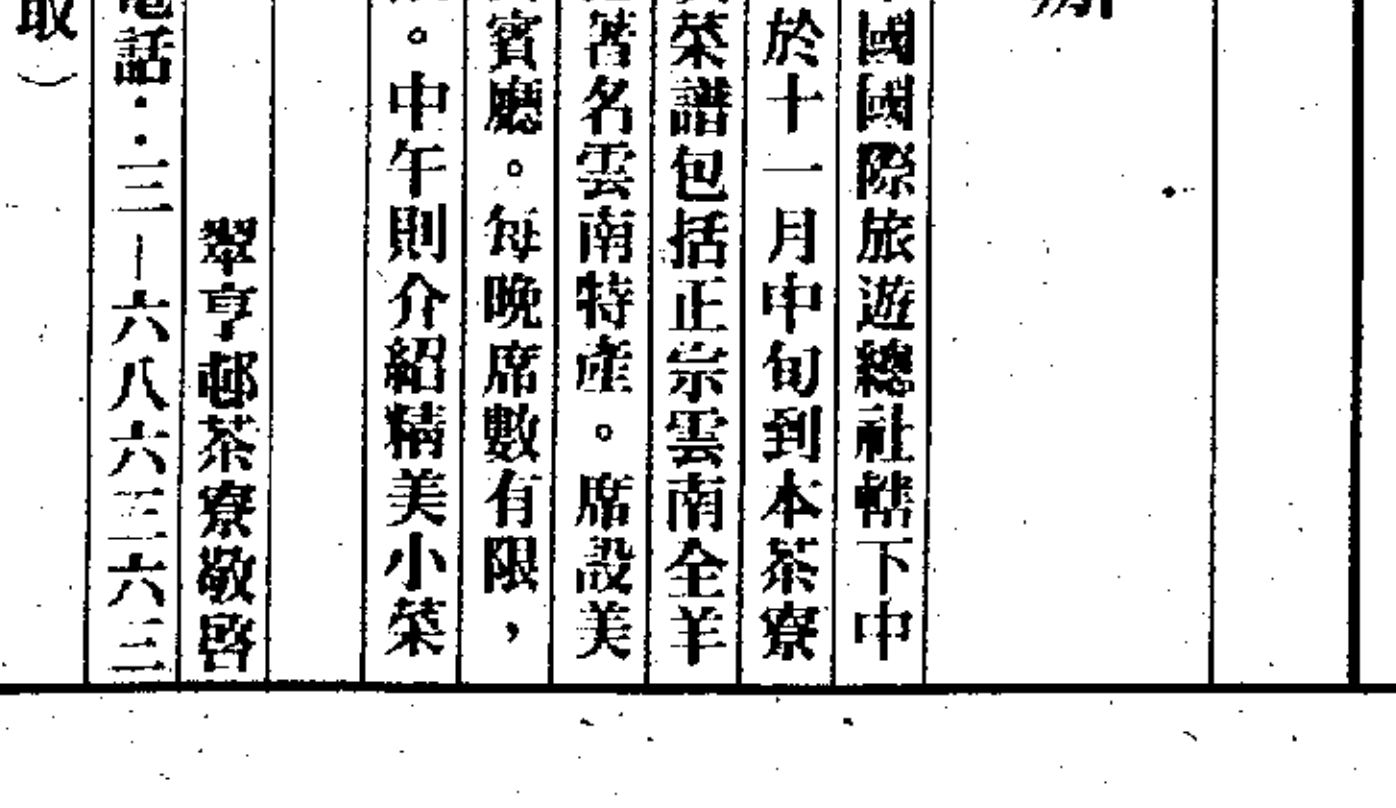 國國際旅遊總社轄下中
於十一月中旬到本茶寮
菜譜包括正宗雲南全羊
著名雲南特產。席設美
賓廳。每晚席數有限,
。中午則介紹精美小菜
翠亨邨茶寮敬啓
電話:三—六八六三六三
取)